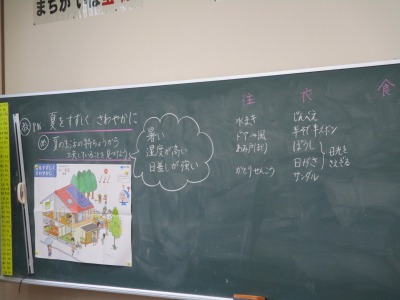 まちがいは
夏をすずしく さわやかに
夏の生活の特ちょうから
工夫していることを見つけよう
暑い
湿度が高い
日差しが強い
住 衣 食
水まき
ドア→風
あみ戸
かとりせんこう
じんべえ
半そで半ズボン
ぼうし
日がさ
サンダル
日光を
さえぎる